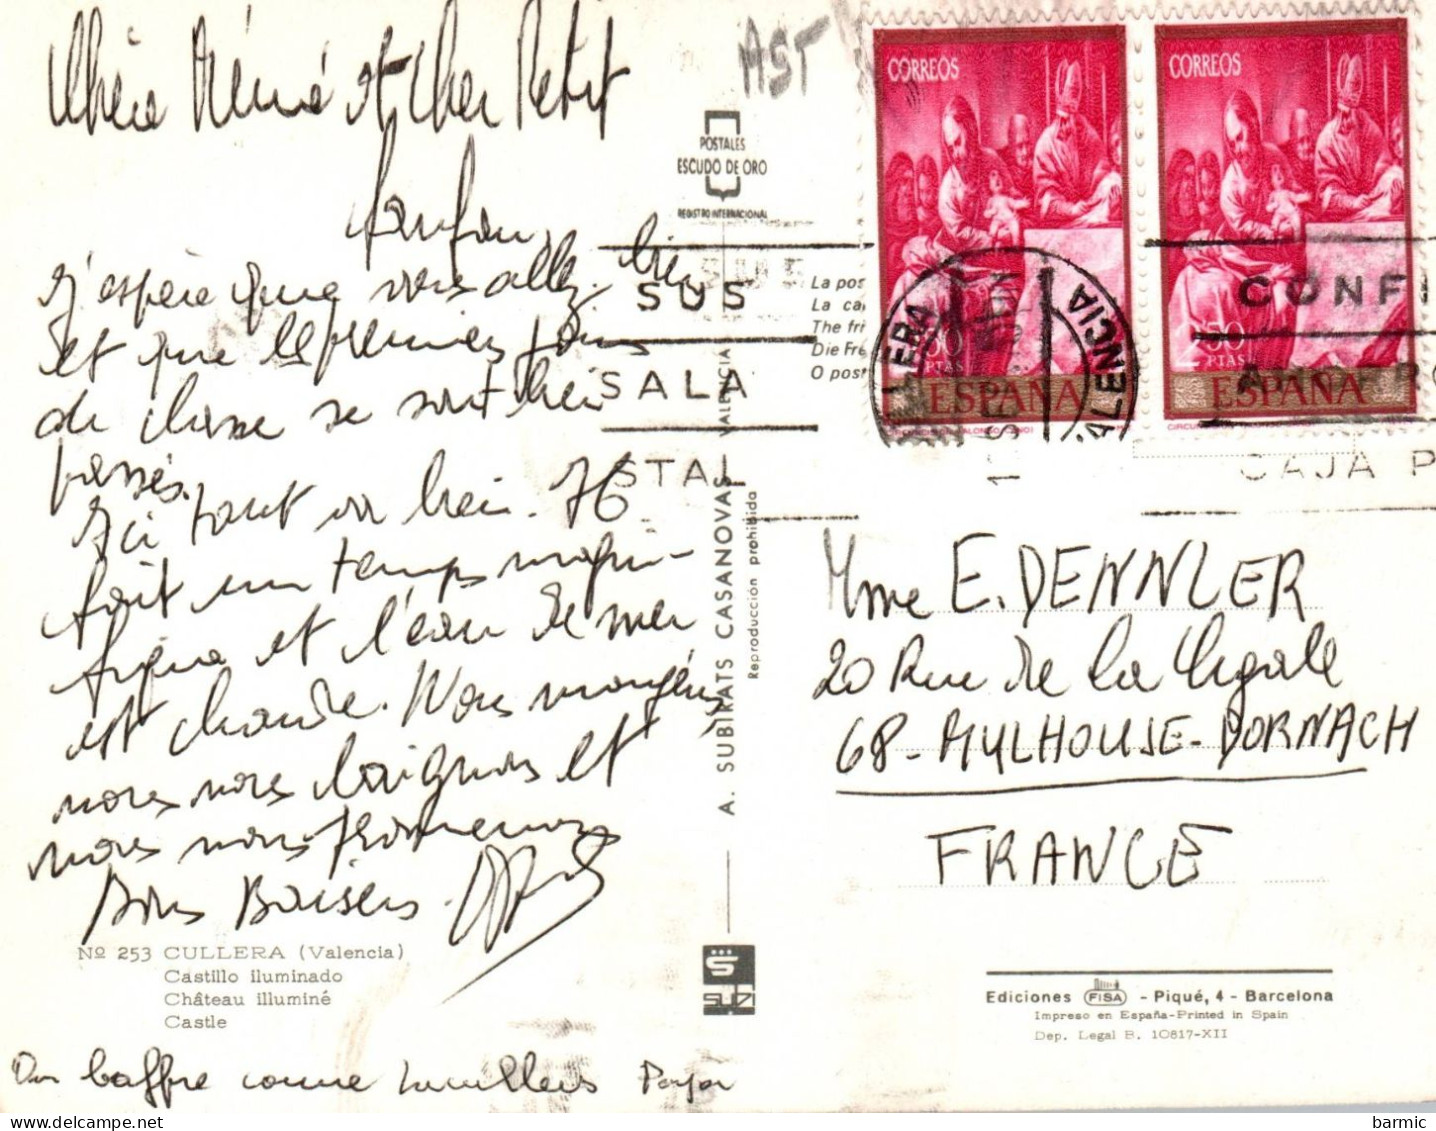 Chère Mémé et Cher Petit
Fanfan,
J'espère que vous allez bien
et que les premiers jours
de classe se sont bien
passés.
Ici tout va bien. Il
fait un temps magni-
fique et l'eau de mer
est chaude. Nous mangeons
nous nous baignons et
nous nous promenons
Bons Baisers.
Nº 253 CULLERA (Valencia)
Castillo iluminado
Château illuminé
Castle
On baffre comme
AST
POSTALES
ESCUDO DE ORO
REGISTRO INTERNACIONAL
SUS
SALA
STAL
La pos
La ca
The fri
Die Fre
O post
A. SUBIRATS CASANOVAS - VALENCIA
Reproducción prohibida
SUBI
CORREOS
50
PTAS
ESPAÑA
CORREOS
50
PTAS
ESPAÑA
LLERA
VALENCIA
CONFI
CAJA P
Mme E. DENNLER
20 Rue de la Cigale
68-MULHOUSE-DORNACH
FRANCE
Ediciones FISA - Piqué, 4 - Barcelona
Impreso en España-Printed in Spain
Dep. Legal B. 10817-XII
barmic